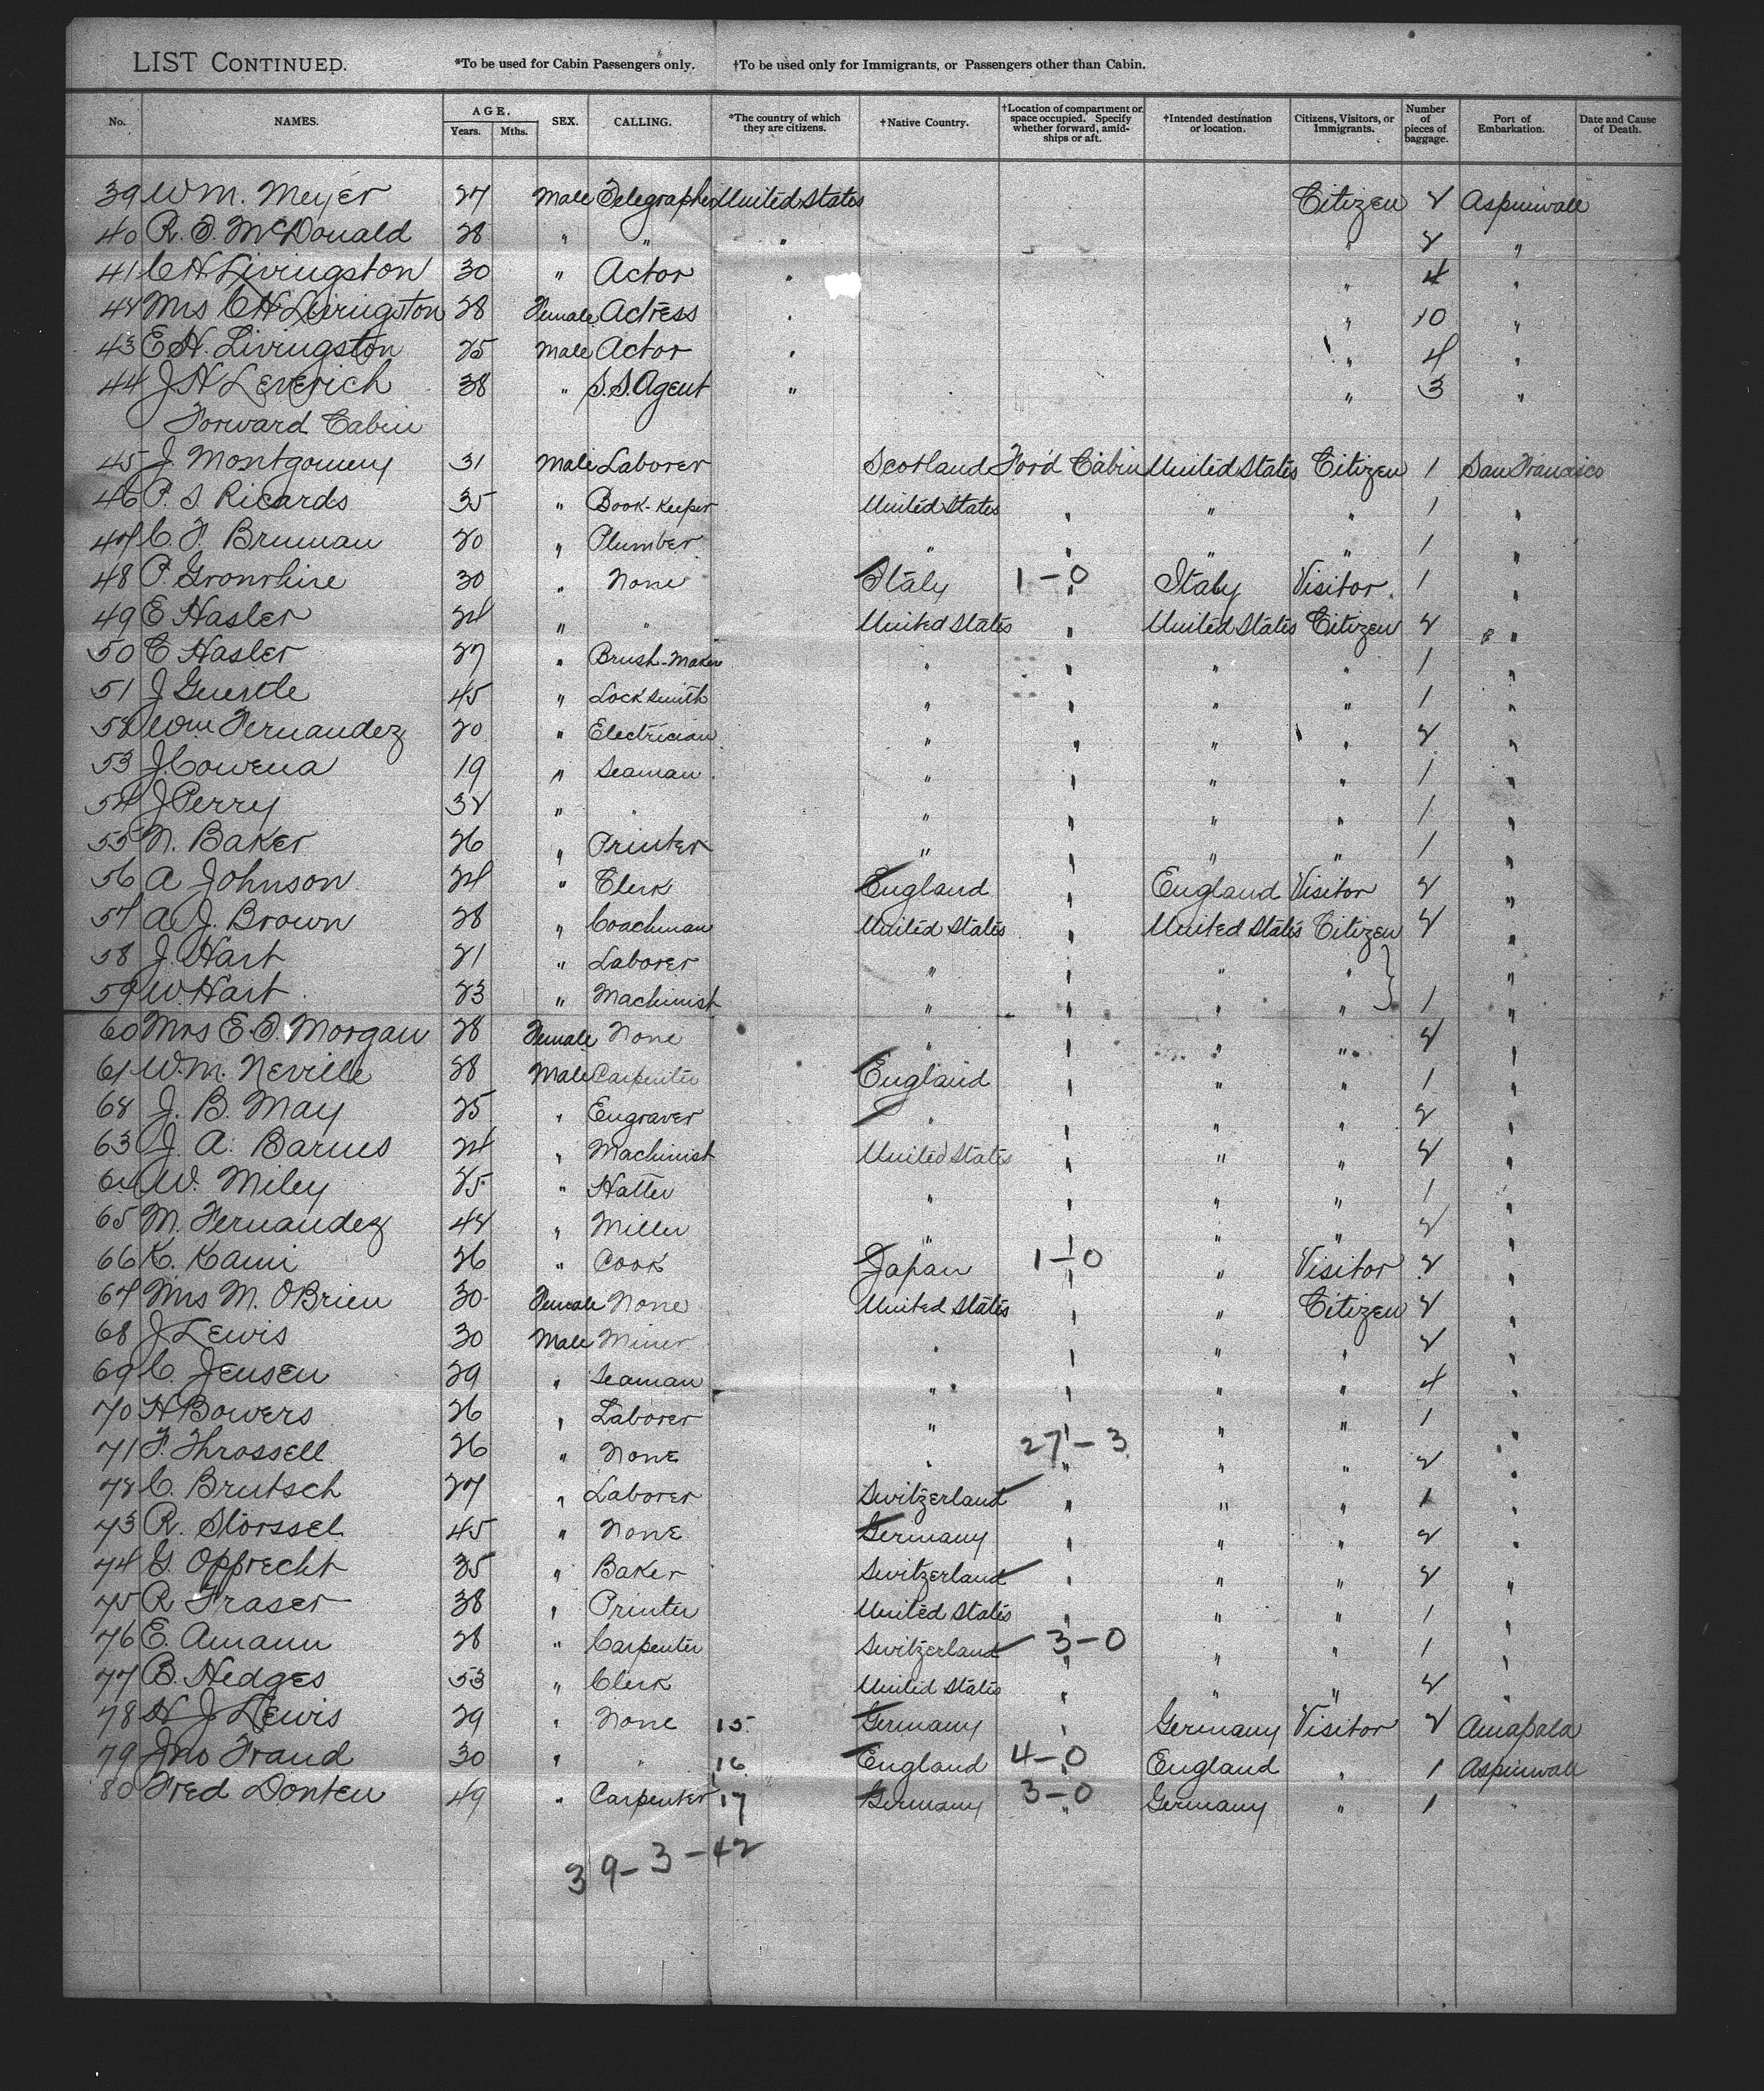 LIST CONTINUED. *To be used for Cabin Passengers only. †To be used only for Immigrants, or Passengers other than Cabin.
No. NAMES. AGE. Years. Mths. SEX. CALLING. *The country of which they are citizens. †Native Country. †Location of compartment or space occupied. Specify whether forward, amidships or aft. †Intended destination or location. Citizens, Visitors, or Immigrants. Number of pieces of baggage. Port of Embarkation. Date and Cause of Death.
39 Wm. Meyer 27 Male Telegrapher United States Citizen 2 Aspinwall
40 R. T. McDonald 28 " " " " 2 "
41 C H Livingston 30 " Actor " " 4 "
42 Mrs C H Livingston 28 Female Actress " " 10 "
43 E H. Livingston 25 Male Actor " " 4 "
44 J H Leverich 38 " S.S. Agent " " 3 "
Forward Cabin
45 J. Montgomery 31 Male Laborer Scotland For'd Cabin United States Citizen 1 San Francisco
46 P. S Ricards 35 " Book-Keeper United States " " " 1 "
47 C. F. Bruman 20 " Plumber " " " " 1 "
48 P. 30 " None Italy 1-0 " Italy Visitor 1 "
49 E Hasler 24 " " United States " United States Citizen 2 "
50 C Hasler 27 " Brush-Maker " " " " 1 "
51 J 45 " Locksmith " " " " 1 "
52 Wm Fernandez 20 " Electrician " " " " 2 "
53 J. Cowena 19 " Seaman " " " " 1 "
54 J Perry 32 " " " " " " 1 "
55 N. Baker 26 " Printer " " " " 1 "
56 A Johnson 24 " Clerk England " England Visitor 2 "
57 A. J. Brown 28 " Coachman United States " United States Citizen 2 "
58 J. Hart 21 " Laborer " " " " "
59 W. Hart 23 " Machinist " " " " 1 "
60 Mrs E. T. Morgan 28 Female None " " " " 2 "
61 W.m. Neville 28 Male Carpenter England " " " 1 "
62 J. B. May 25 " Engraver " " " " 2 "
63 J. A. Barnes 24 " Machinist United States " " " 2 "
64 W. Miley 25 " Hatter " " " " 1 "
65 M. Fernandez 42 " Miller " " " " 2 "
66 K. Kami 26 " Cook Japan 1-0 " " Visitor 2 "
67 Mrs M. OBrien 30 Female None United States " " Citizen 2 "
68 J Lewis 30 Male Miner " " " " 2 "
69 C. Jensen 29 " Seaman " " " " 4 "
70 H Bowers 26 " Laborer " " " " 1 "
71 F. Throssell 26 " None " 27-3 " " " 2 "
72 C. Brutsch 27 " Laborer Switzerland " " " 1 "
73 R. Storssel 45 " None Germany " " " 2 "
74 G. Opprecht 35 " Baker Switzerland " " " 2 "
75 R Fraser 38 " Printer United States " " " 1 "
76 E. Amann 28 " Carpenter Switzerland 3-0 " " " 1 "
77 B. Hedges 53 " Clerk United States " " " 2 "
78 H J Lewis 29 " None 15 Germany " Germany Visitor 2 Amapala
79 Jno Fraud 30 " " 16 England 4-0 " England " 1 Aspinwall
80 Fred Donten 49 " Carpenter 17 Germany 3-0 " Germany " 1 "
39-3-42